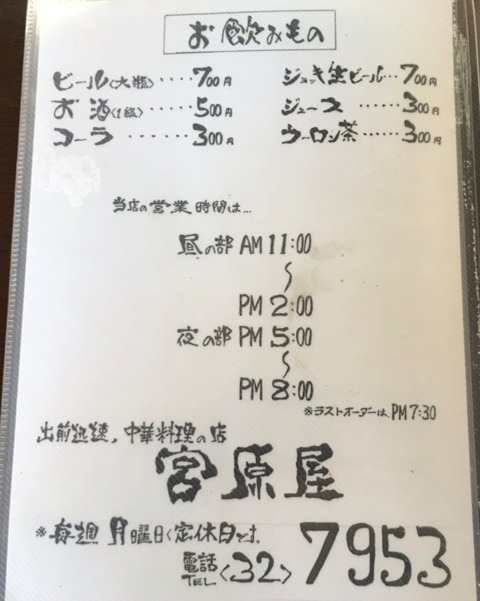 お飲みもの
ビール〈大瓶〉‥‥700円 ジョッキ生ビール‥700円
お酒〈1級〉‥‥‥500円 ジュース‥‥‥300円
コーラ‥‥‥‥300円 ウーロン茶‥‥‥300円
当店の営業時間は…
昼の部 AM 11:00
〜
PM 2:00
夜の部 PM 5:00
〜
PM 8:00
※ラストオーダーは、PM 7:30
出前迅速、中華料理の店
宮原屋
※毎週月曜日〈定休日です。
電話 TEL〈32〉7953